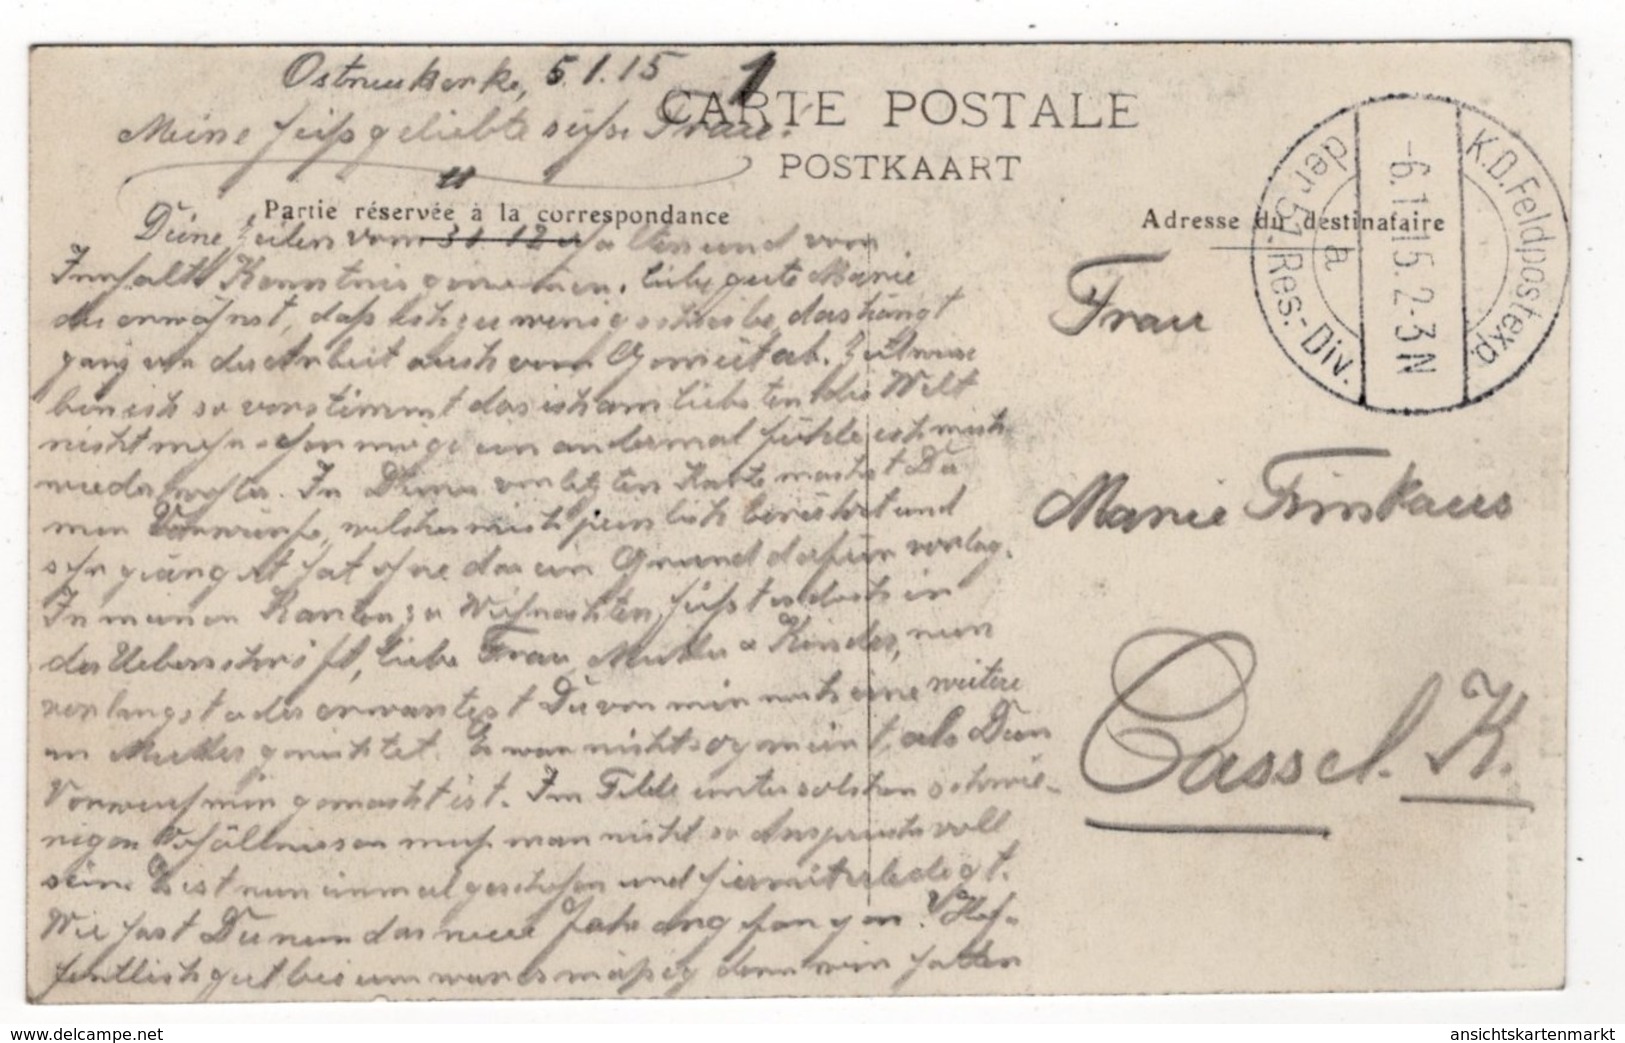 Ostnieukerke, 5.1.15 1
CARTE POSTALE
Meine heißgeliebte süße Frau!
POSTKAART
Partie réservée à la correspondance
Adresse du destinataire
K.D. Feldpostexp.
der 51. Res.-Div.
a
-6.1.15.2-3N
Deine Zeilen vom 31 12 erhalten und vom
Innhalt Kenntnis genommen. Liebe gute Marie
du erwähnst, daß ich zu wenig schreibe, das hängt
ganz von der Arbeit auch vom Gemüt ab. Zeitweise
bin ich so verstimmt das ich am liebsten der Welt
nicht mehr sehen möge ein andermal fühle ich mich
wieder wohler. In Deiner letzten Karte machst Du
mir Vorwürfe, welcher mich peinlich berührt und
sehr gekränkt hat ohne das ein Grund dafür vorlag.
In meinen Karten zu Weihnachten hieß es doch in
der Ueberschrift, liebe Frau, Mutter u Kinder, nun
verlangst oder erwartest Du von mir noch eine weitere
an Mutter gerichtet. Es war nicht so gemeint, als Dein
Vorwurf mir gemacht ist. Im Felde unter solchen schwie-
rigen Verhältnissen muß man nicht so Anspruchsvoll
sein. Es ist nun einmal geschehen und hiermit erledigt.
Wie hast Du nun das neue Jahr angefangen? Hof-
fentlich gut bei uns war es mäßig denn wir hatten
Frau
Marie Trinkaus
Cassel. K.
www.delcampe.net
ansichtskartenmarkt